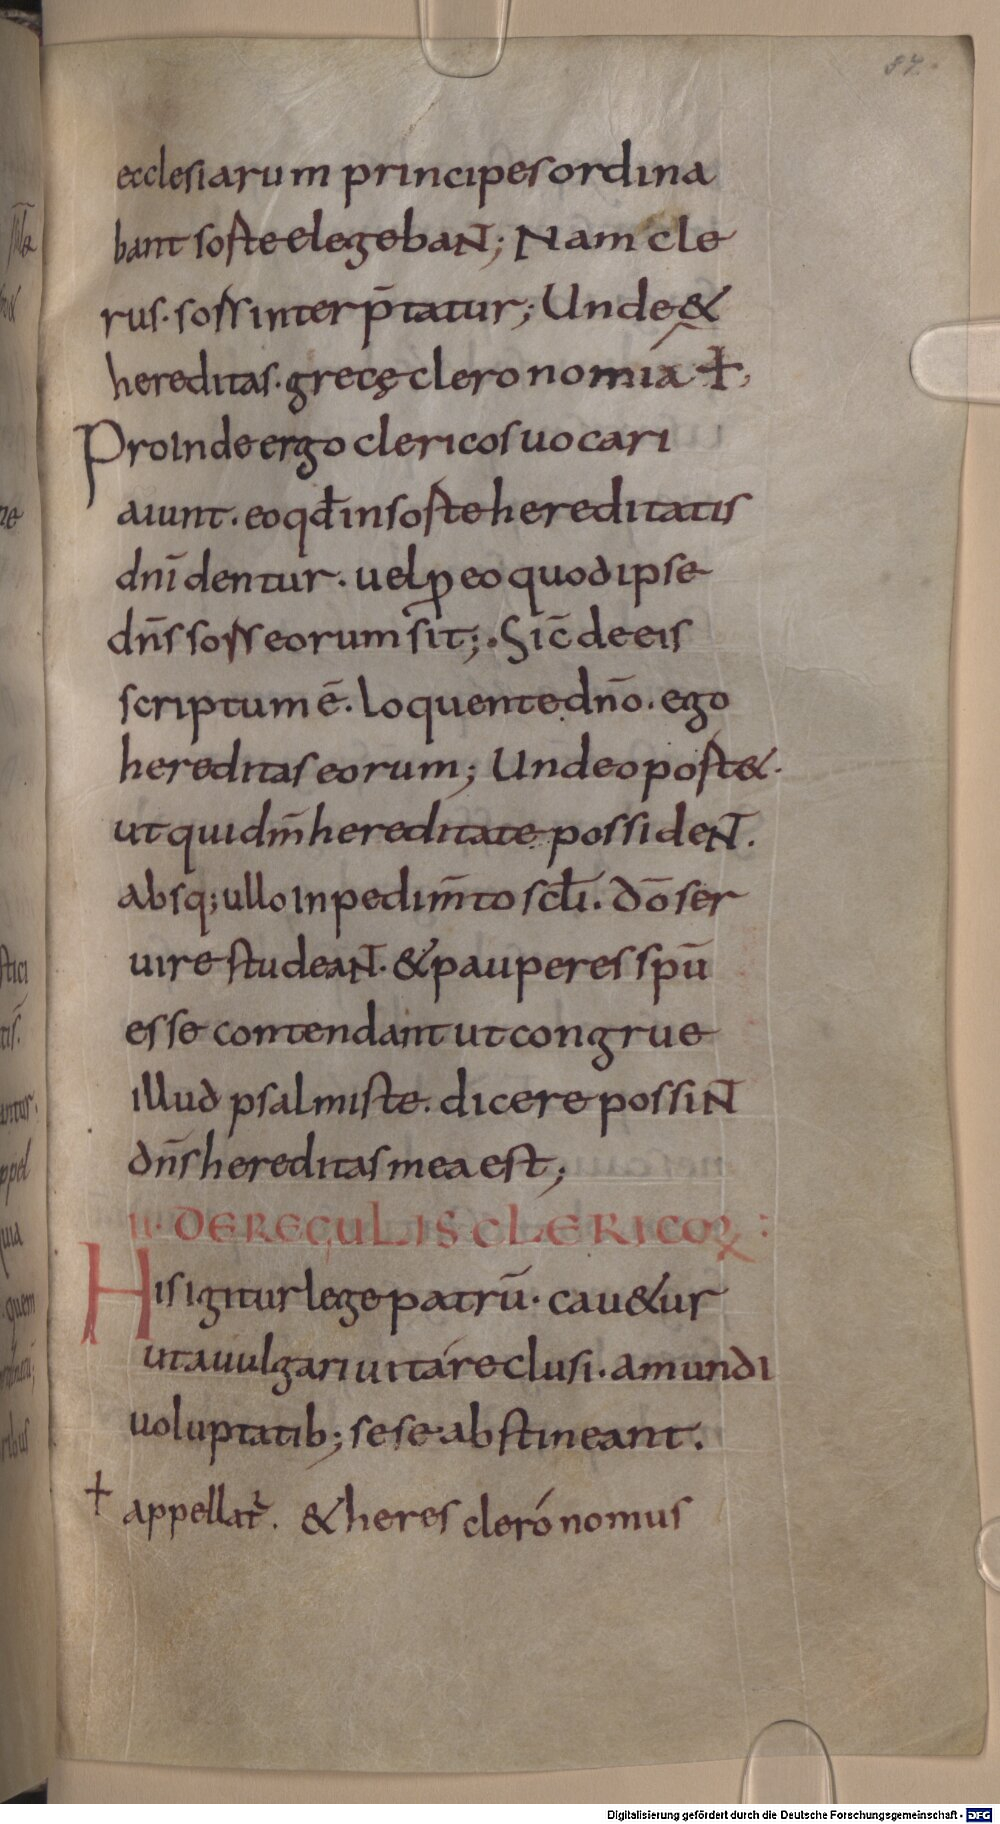 37.
ecclesiarum principes ordina
bant sorte elegebant; Nam cle
rus. sors interp̄tatur; Unde &
hereditas. grecę cleronomia ⳨
Proinde ergo clericos uocari
aiunt. eo qđ in sorte hereditatis
dn̄i dentur. uel ꝓ eo quod ipse
dn̄s sors eorum sit; Sic̄ de eis
scriptum ē. loquente dn̄o. ego
hereditas eorum; Unde oport&.
ut qui dm̄ hereditate possident.
absq; ullo inpedim̄to scłi. dō ser
uire studeant. & pauperes spū
esse contendant ut congrue
illud psalmiste. dicere possint
dn̄s hereditas mea est;
II. DE REGULIS CLERICOꝝ:
His igitur lege patrū. cau&ur
ut a uulgari uita reclusi. a mundi
uoluptatib; sese abstineant.
+ appellat᷑. & heres clerónomus
Digitalisierung gefördert durch die Deutsche Forschungsgemeinschaft - DFG